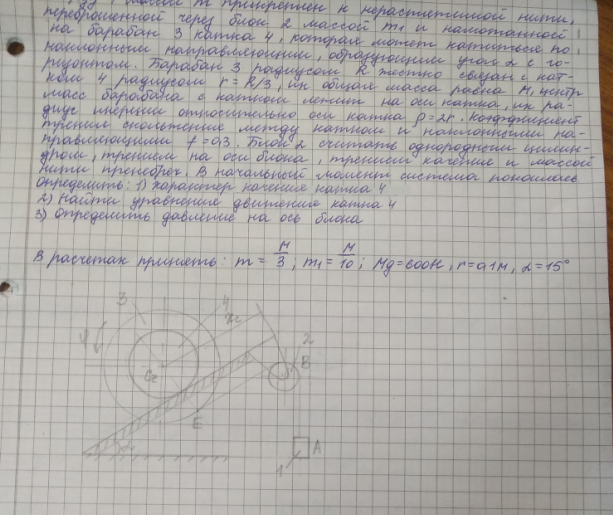 массой m прикреплен к нерастяжимой нити,
переброшенной через блок 2 массой m₁ и намотанной
на барабан 3 катка 4, который может катиться по
наклонным направляющим, образующим угол α с го-
ризонтом. Барабан 3 радиусом R жестко связан с кат-
ком 4 радиусом r = R/3, их общая масса равна M, центр
масс барабана с катком лежит на оси катка, их ра-
диус инерции относительно оси катка ρ=2r. Коэффициент
трения скольжения между катком и наклонными на-
правляющими f = 0,3. Блок 2 считать однородным цилин-
дром, трением на оси блока, трением качения и массой
нити пренебреч. В начальный момент система покоилась
Определить: 1) характер качения катка 4
2) Найти уравнение движения катка 4
3) Определить давление на ось блока
В расчетах принять: m = M/3; m₁ = M/10; Mg=600Н, r=0,1м, α=15°
3 4 x_c 2
φ B
C₂
E
α A
1